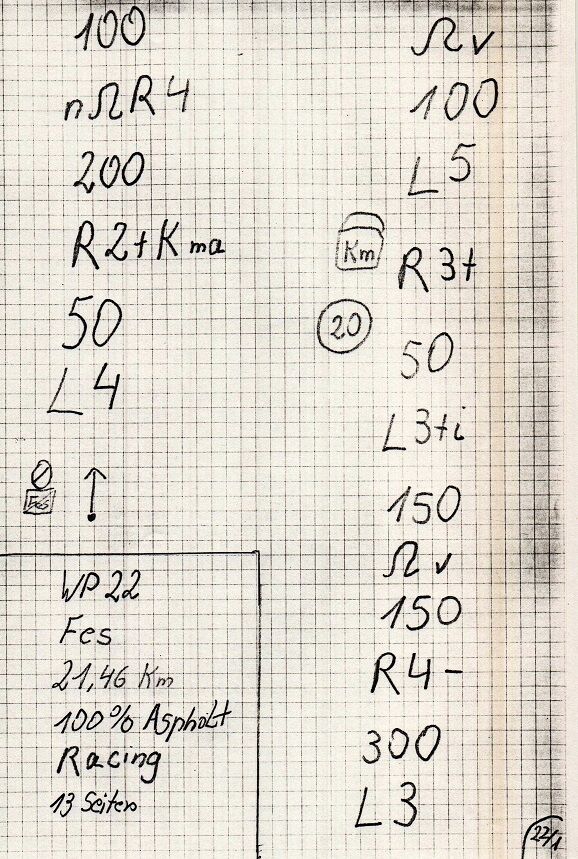 100
nΩR4
200
R2+Kma
50
L4
Fes
WP22
Fes
21,46 Km
100% Asphalt
Racing
13 Seiten
Ωv
100
L5
Km
R3+
20
50
L3+i
150
Ωv
150
R4-
300
L3
22/1